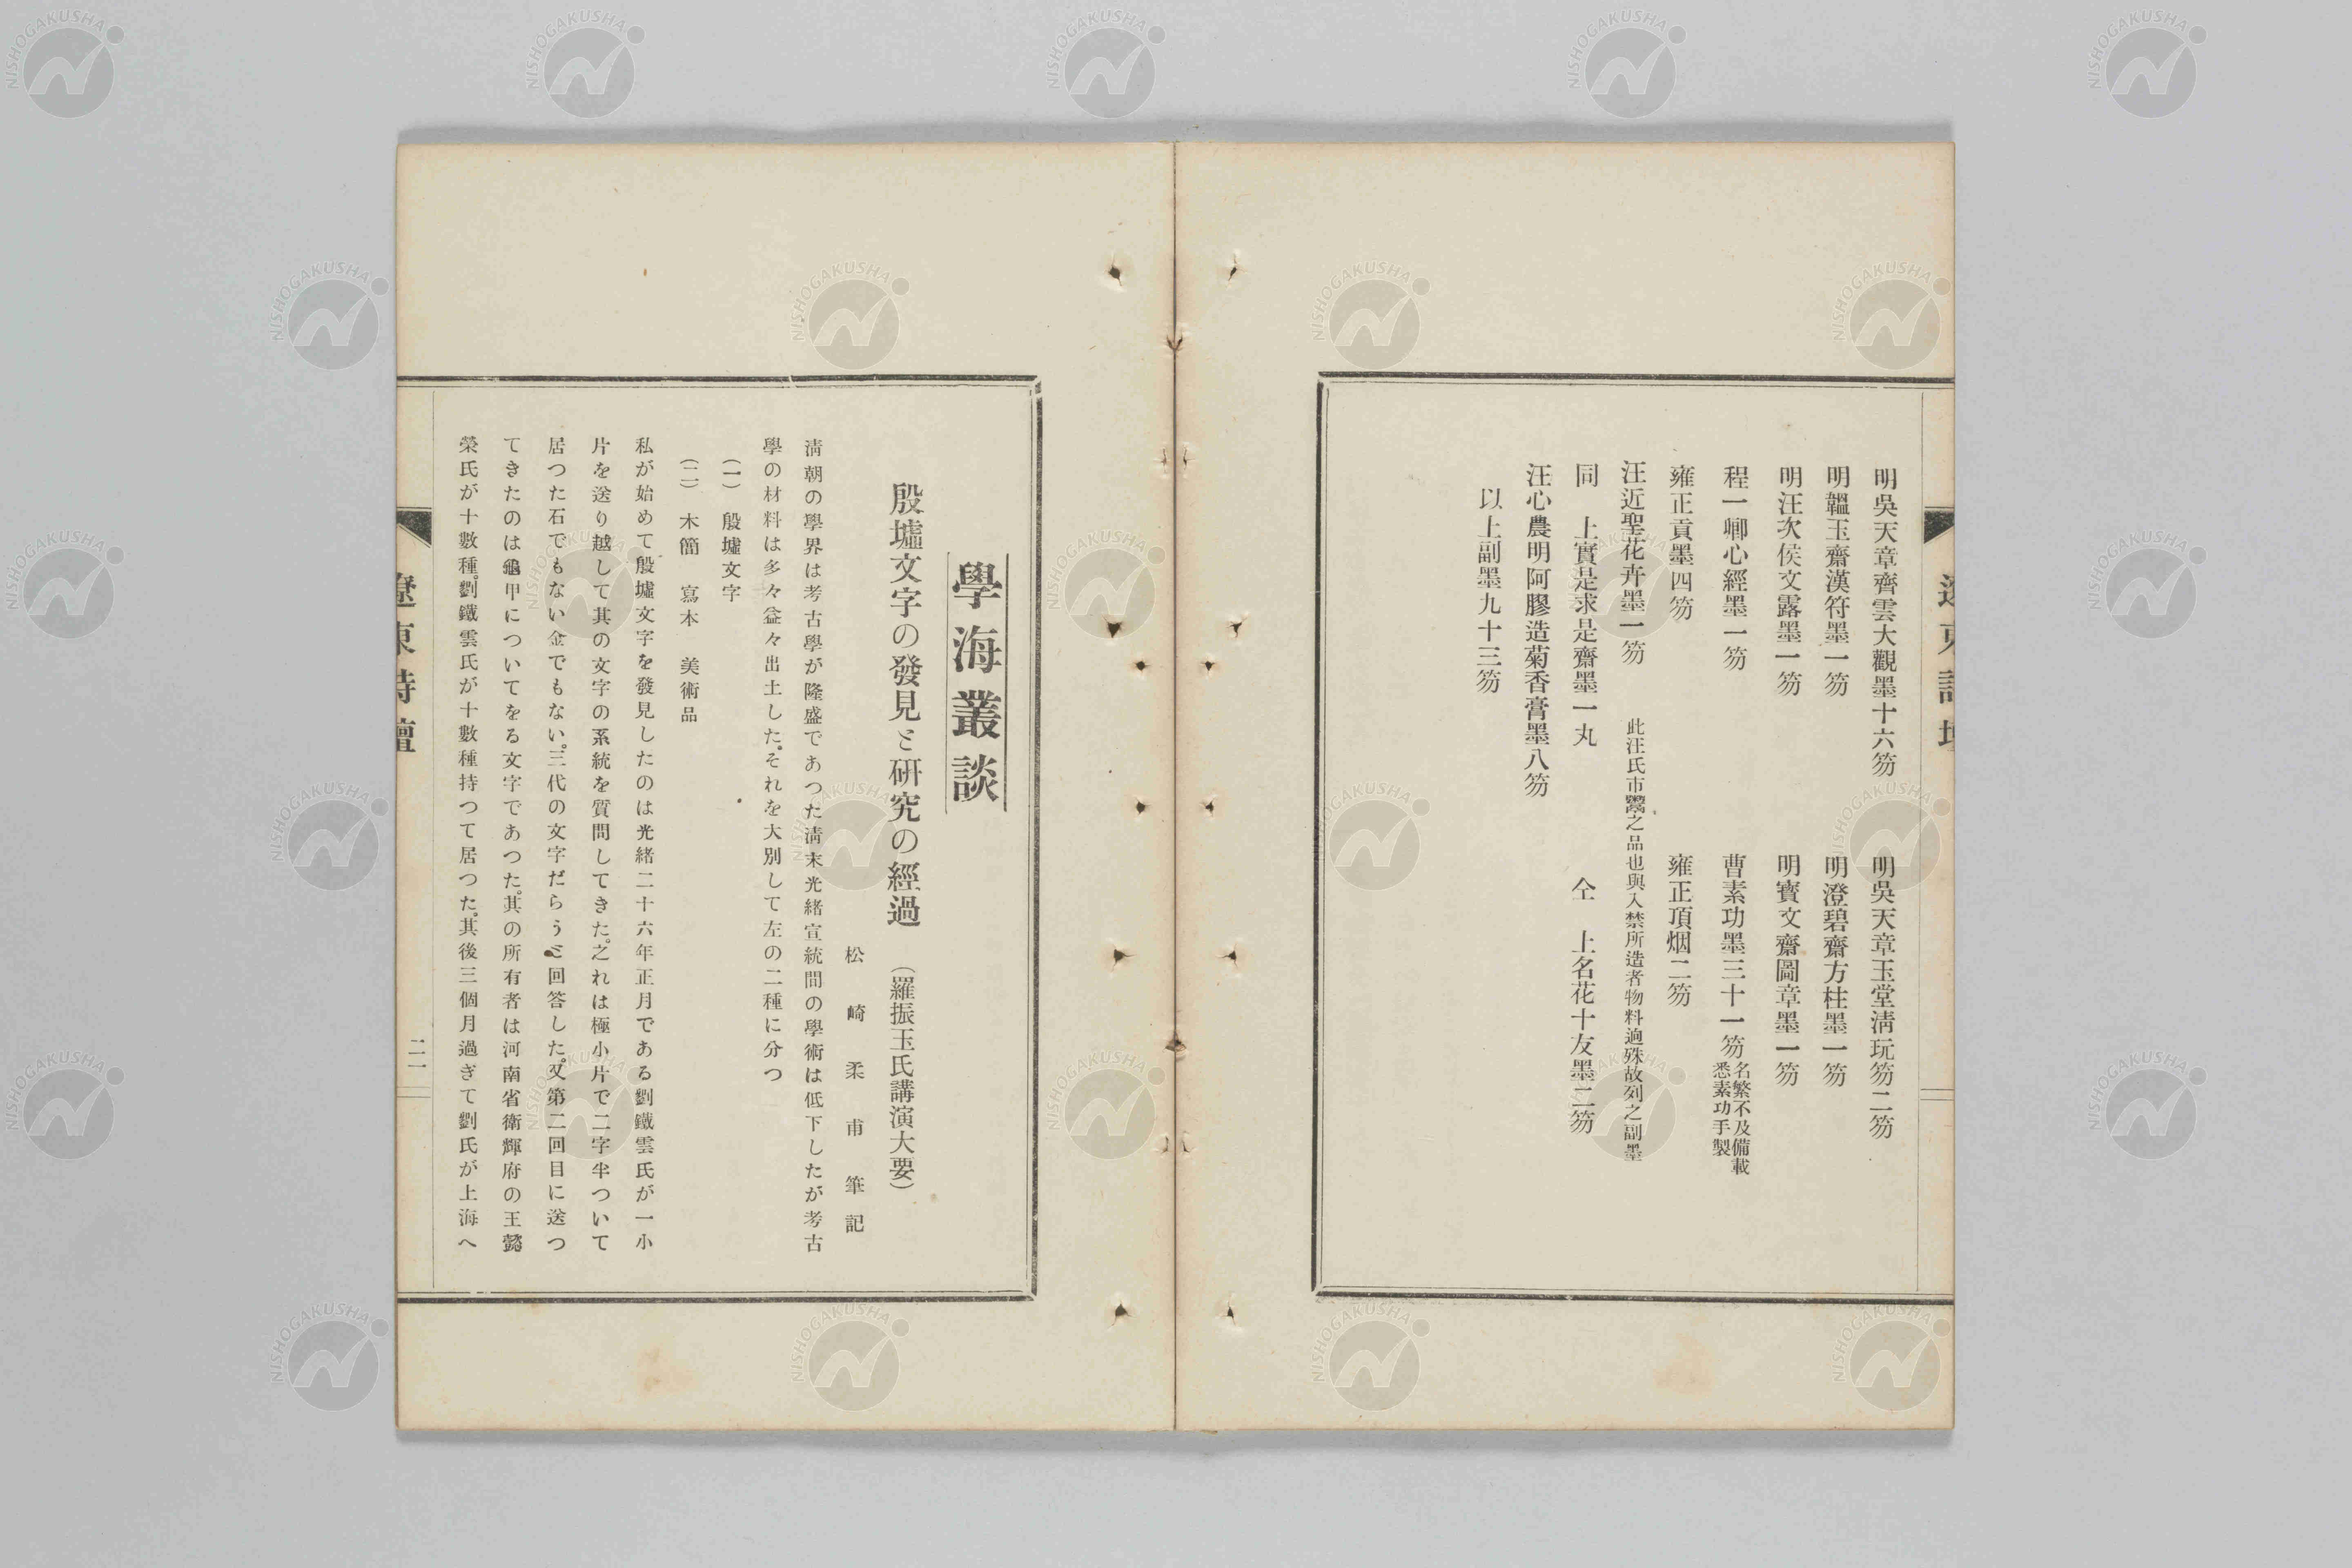 明吳天章齊雲大觀墨十六笏
明吳天章玉堂淸玩笏二笏
明韞玉齋漢符墨一笏
明澄碧齋方柱墨一笏
明汪次侯文露墨一笏
明寶文齋圖章墨一笏
程一卿心經墨一笏
曹素功墨三十一笏
名繁不及備載
悉素功手製
雍正貢墨四笏
雍正頂烟二笏
汪近聖花卉墨一笏
此汪氏市鬻之品也與入禁所造者物料逈殊故列之副墨
同 上實是求是齋墨一丸
仝 上名花十友墨二笏
汪心農明阿膠造菊香膏墨八笏
以上副墨九十三笏
學海叢談
殷墟文字の發見と研究の經過 (羅振玉氏講演大要)
松崎柔甫筆記
淸朝の學界は考古學が隆盛であつた淸末光緖宣統間の學術は低下したが考古
學の材料は多々益々出土した。それを大別して左の二種に分つ
(一) 殷墟文字
(二) 木簡 寫本 美術品
私が始めて殷墟文字を發見したのは光緖二十六年正月である劉鐵雲氏が一小
片を送り越して其の文字の系統を質問してきた。之れは極小片で二字半ついて
居つた石でもない金でもない。三代の文字だらうと回答した。又第二回目に送つ
てきたのは龜甲についてをる文字であつた。其の所有者は河南省衛輝府の王懿
榮氏が十數種。劉鐵雲氏が十數種持つて居つた。其後三個月過ぎて劉氏が上海へ
遼東詩壇
二一
NISHOGAKUSHA